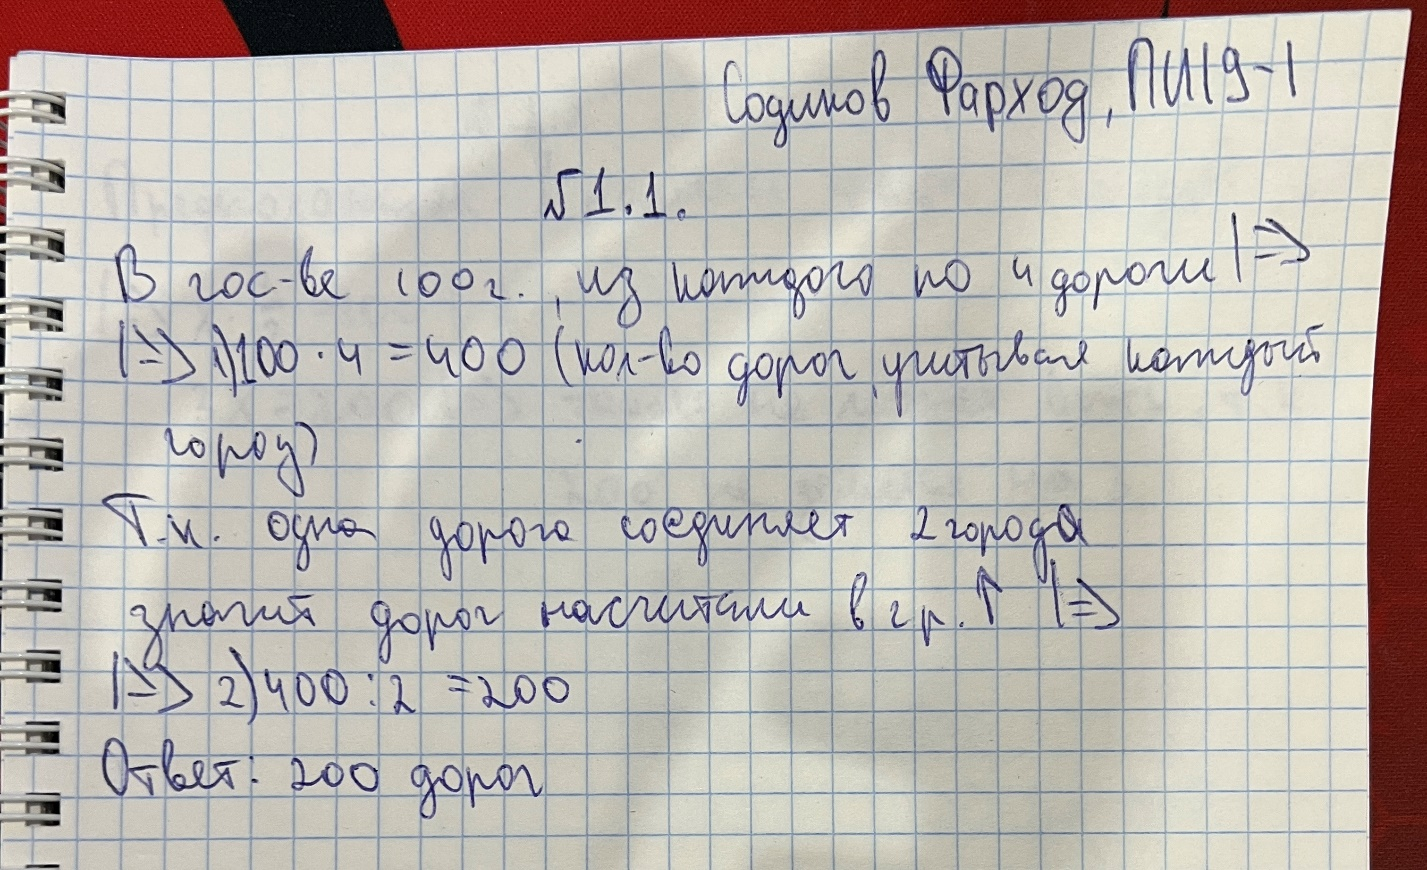 Содиков Фарход, ПИ19-1
№1.1.
В гос-ве 100г., из каждого по 4 дороги |=>
|=> 1)100·4=400 (кол-во дорог, учитывая каждый
город)
Т.к. одна дорога соединяет 2 города
значит дорог насчитали в 2 р. ↑ |=>
|=> 2)400:2=200
Ответ: 200 дорог